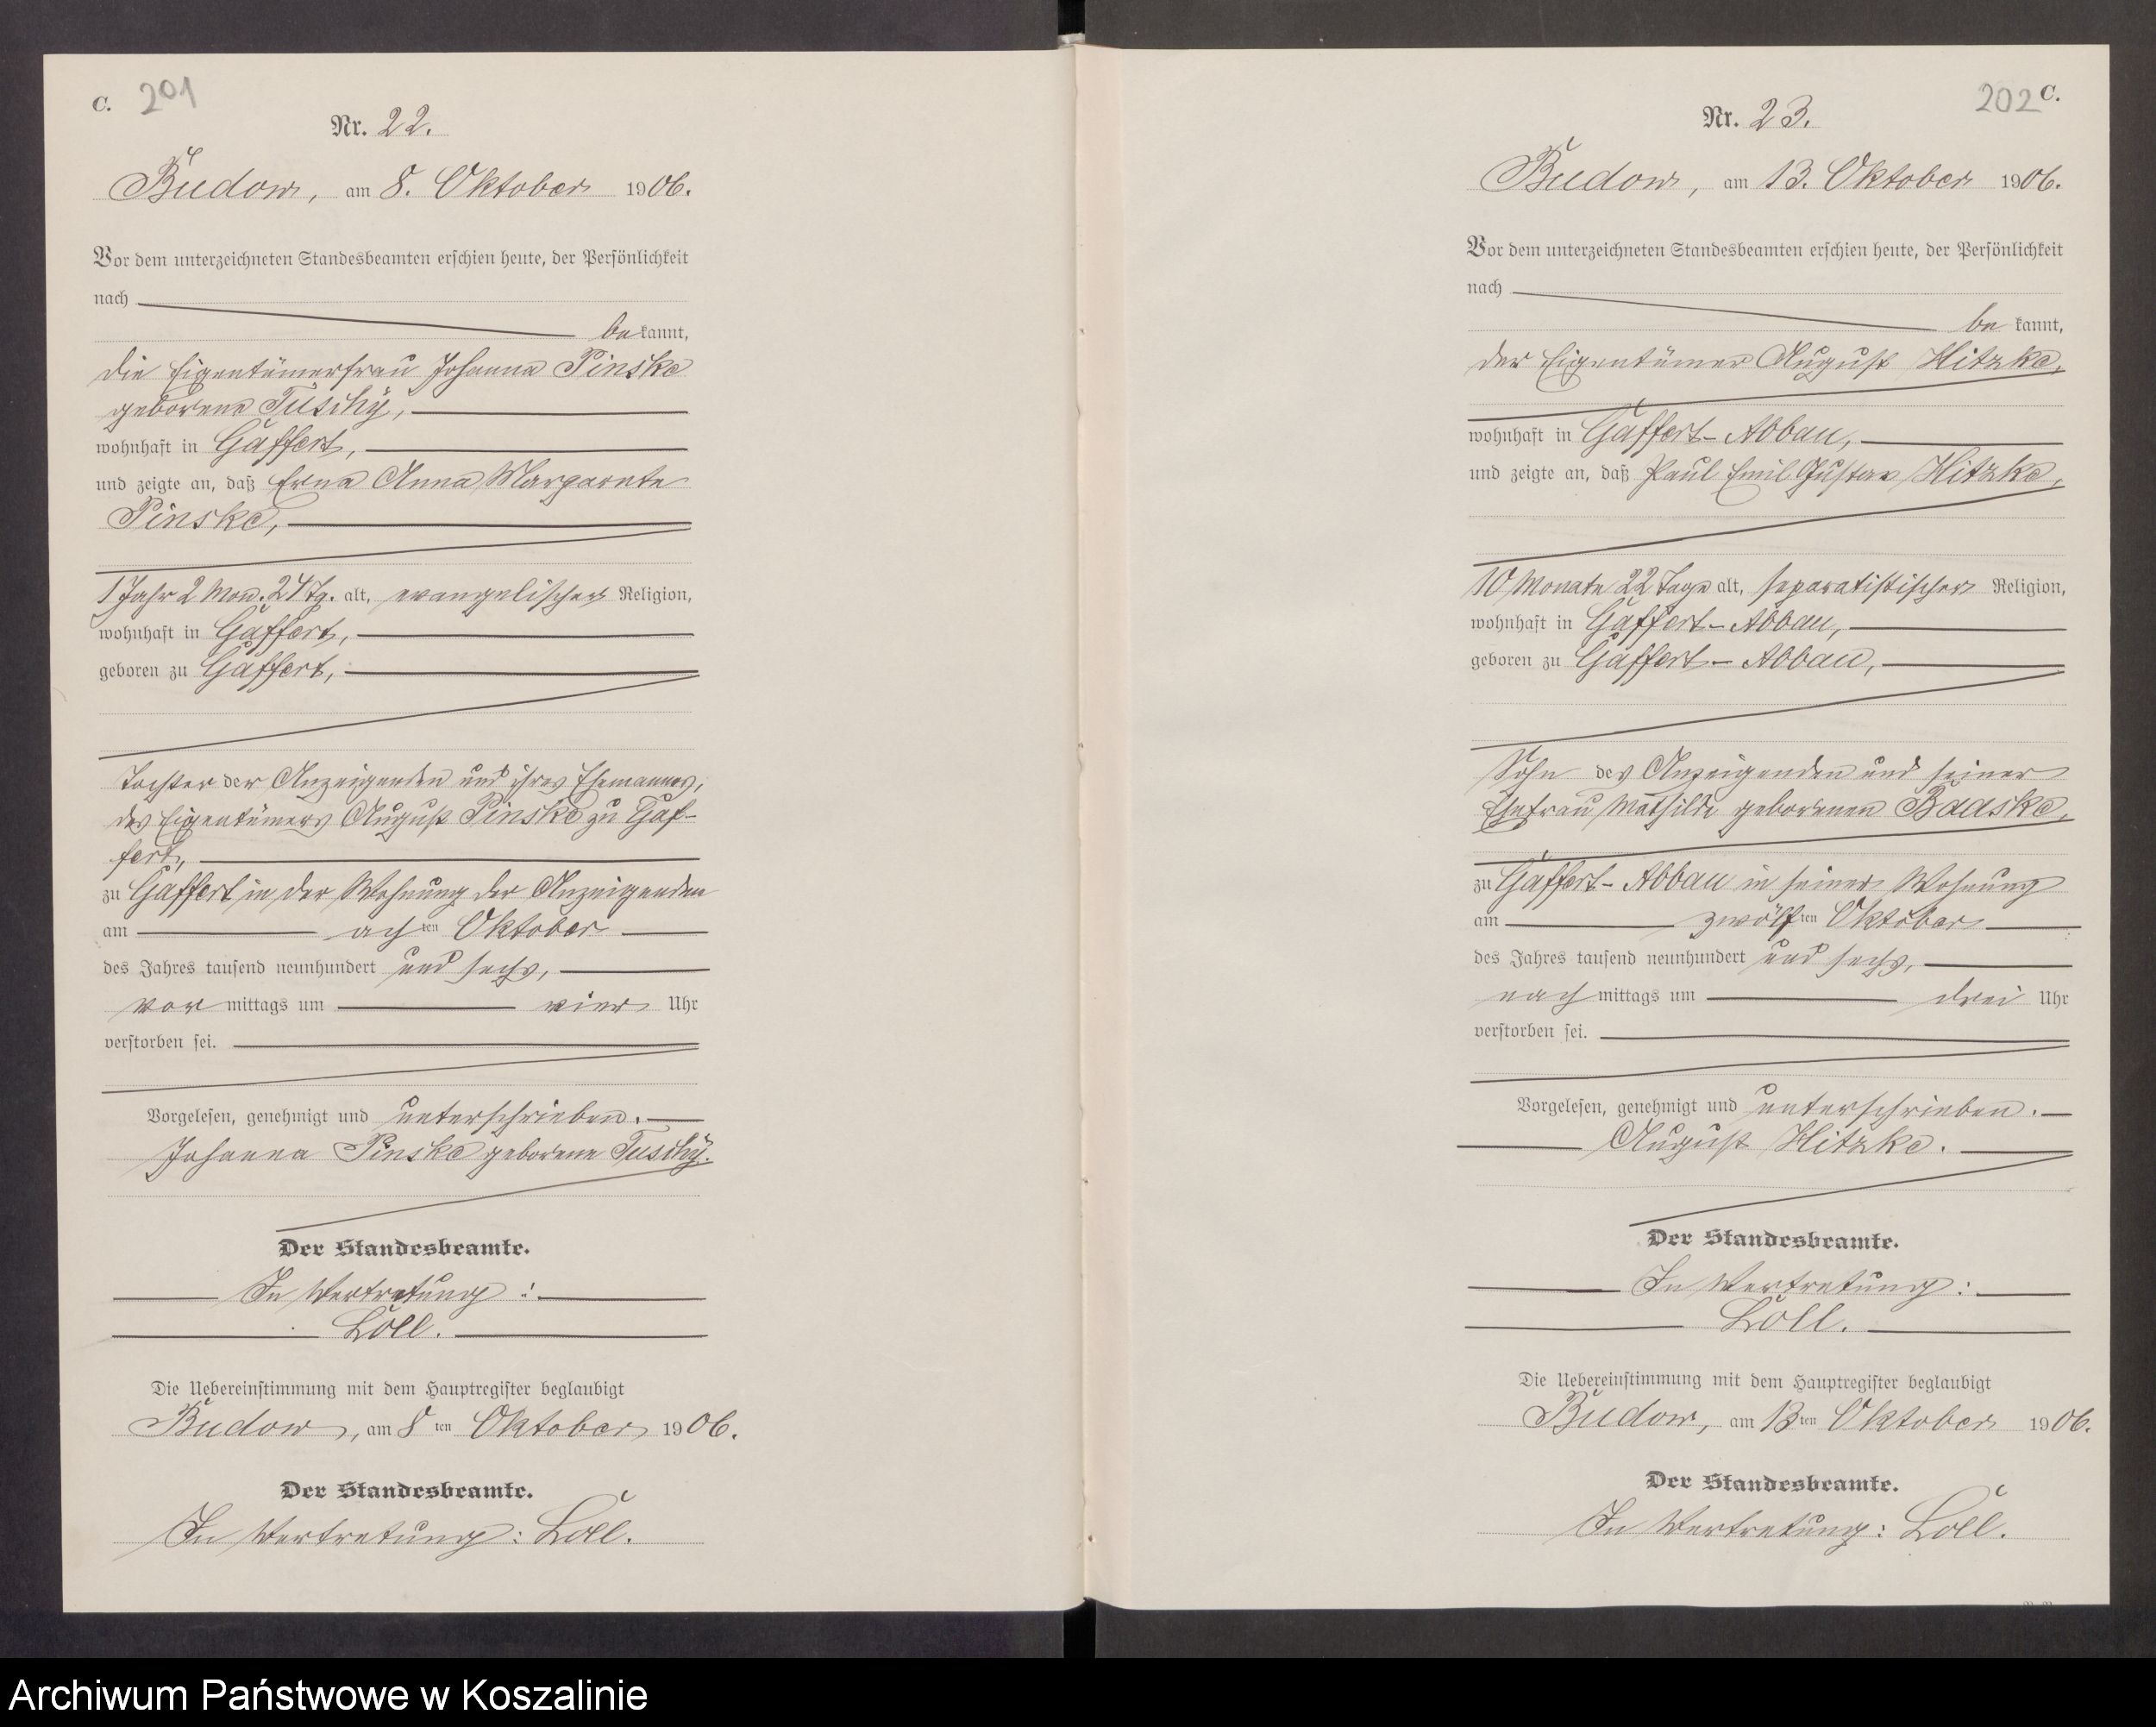 C. 201
Nr. 22.
Budow, am 8. Oktober 1906.
Vor dem unterzeichneten Standesbeamten erschien heute, der Persönlichkeit
nach
be kannt,
die Eigentümerfrau Johanna Pinske
geborene Tuschy,
wohnhaft in Gaffert,
und zeigte an, daß Erna Anna Margarete
Pinske,
1 Jahr 2 Mon. 24 Tg. alt, evangelischer Religion,
wohnhaft in Gaffert,
geboren zu Gaffert,
Tochter der Anzeigenden und ihres Ehemannes,
des Eigentümers August Pinske zu Gaf-
fert,
zu Gaffert in der Wohnung der Anzeigenden
am achten Oktober
des Jahres tausend neunhundert und sechs,
vor mittags um vier Uhr
verstorben sei.
Vorgelesen, genehmigt und unterschrieben.
Johanna Pinske geborene Tuschy.
Der Standesbeamte.
In Vertretung:
Löll.
Die Uebereinstimmung mit dem Hauptregister beglaubigt
Budow, am 8 ten Oktober 1906.
Der Standesbeamte.
In Vertretung: Löll.
202 C.
Nr. 23.
Budow, am 13. Oktober 1906.
Vor dem unterzeichneten Standesbeamten erschien heute, der Persönlichkeit
nach
be kannt,
der Eigentümer August Hitzke,
wohnhaft in Gaffert-Abbau,
und zeigte an, daß Paul Emil Gustav Hitzke,
10 Monate 22 Tage alt, separatistischer Religion,
wohnhaft in Gaffert-Abbau,
geboren zu Gaffert-Abbau,
Sohn des Anzeigenden und seiner
Ehefrau Mathilde geborenen Baaske,
zu Gaffert-Abbau in seiner Wohnung
am zwölften Oktober
des Jahres tausend neunhundert und sechs,
nach mittags um drei Uhr
verstorben sei.
Vorgelesen, genehmigt und unterschrieben.
August Hitzke.
Der Standesbeamte.
In Vertretung:
Löll.
Die Uebereinstimmung mit dem Hauptregister beglaubigt
Budow, am 13 ten Oktober 1906.
Der Standesbeamte.
In Vertretung: Löll.
Archiwum Państwowe w Koszalinie